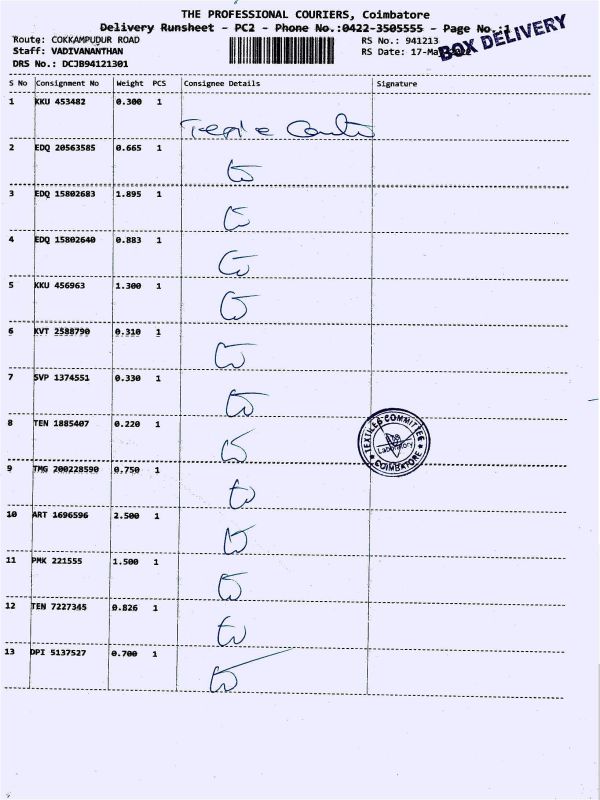 THE PROFESSIONAL COURIERS, Coimbatore
Delivery Runsheet - PC2 - Phone No.:0422-3505555 - Page No.:1
BOX DELIVERY
Route: COKKAMPUDUR ROAD
RS No.: 941213
Staff: VADIVANANTHAN
RS Date: 17-Ma
DRS No.: DCJB94121301
S No Consignment No Weight PCS Consignee Details Signature
1 KKU 453482 0.300 1
2 EDQ 20563585 0.665 1
3 EDQ 15802683 1.895 1
4 EDQ 15802640 0.883 1
5 KKU 456963 1.300 1
6 KVT 2588790 0.310 1
7 SVP 1374551 0.330 1
8 TEN 1885407 0.220 1
TEXTILES COMMITTEE
Laboratory
COIMBATORE
9 TMG 200228590 0.750 1
10 ART 1696596 2.500 1
11 PMK 221555 1.500 1
12 TEN 7227345 0.826 1
13 DPI 5137527 0.700 1